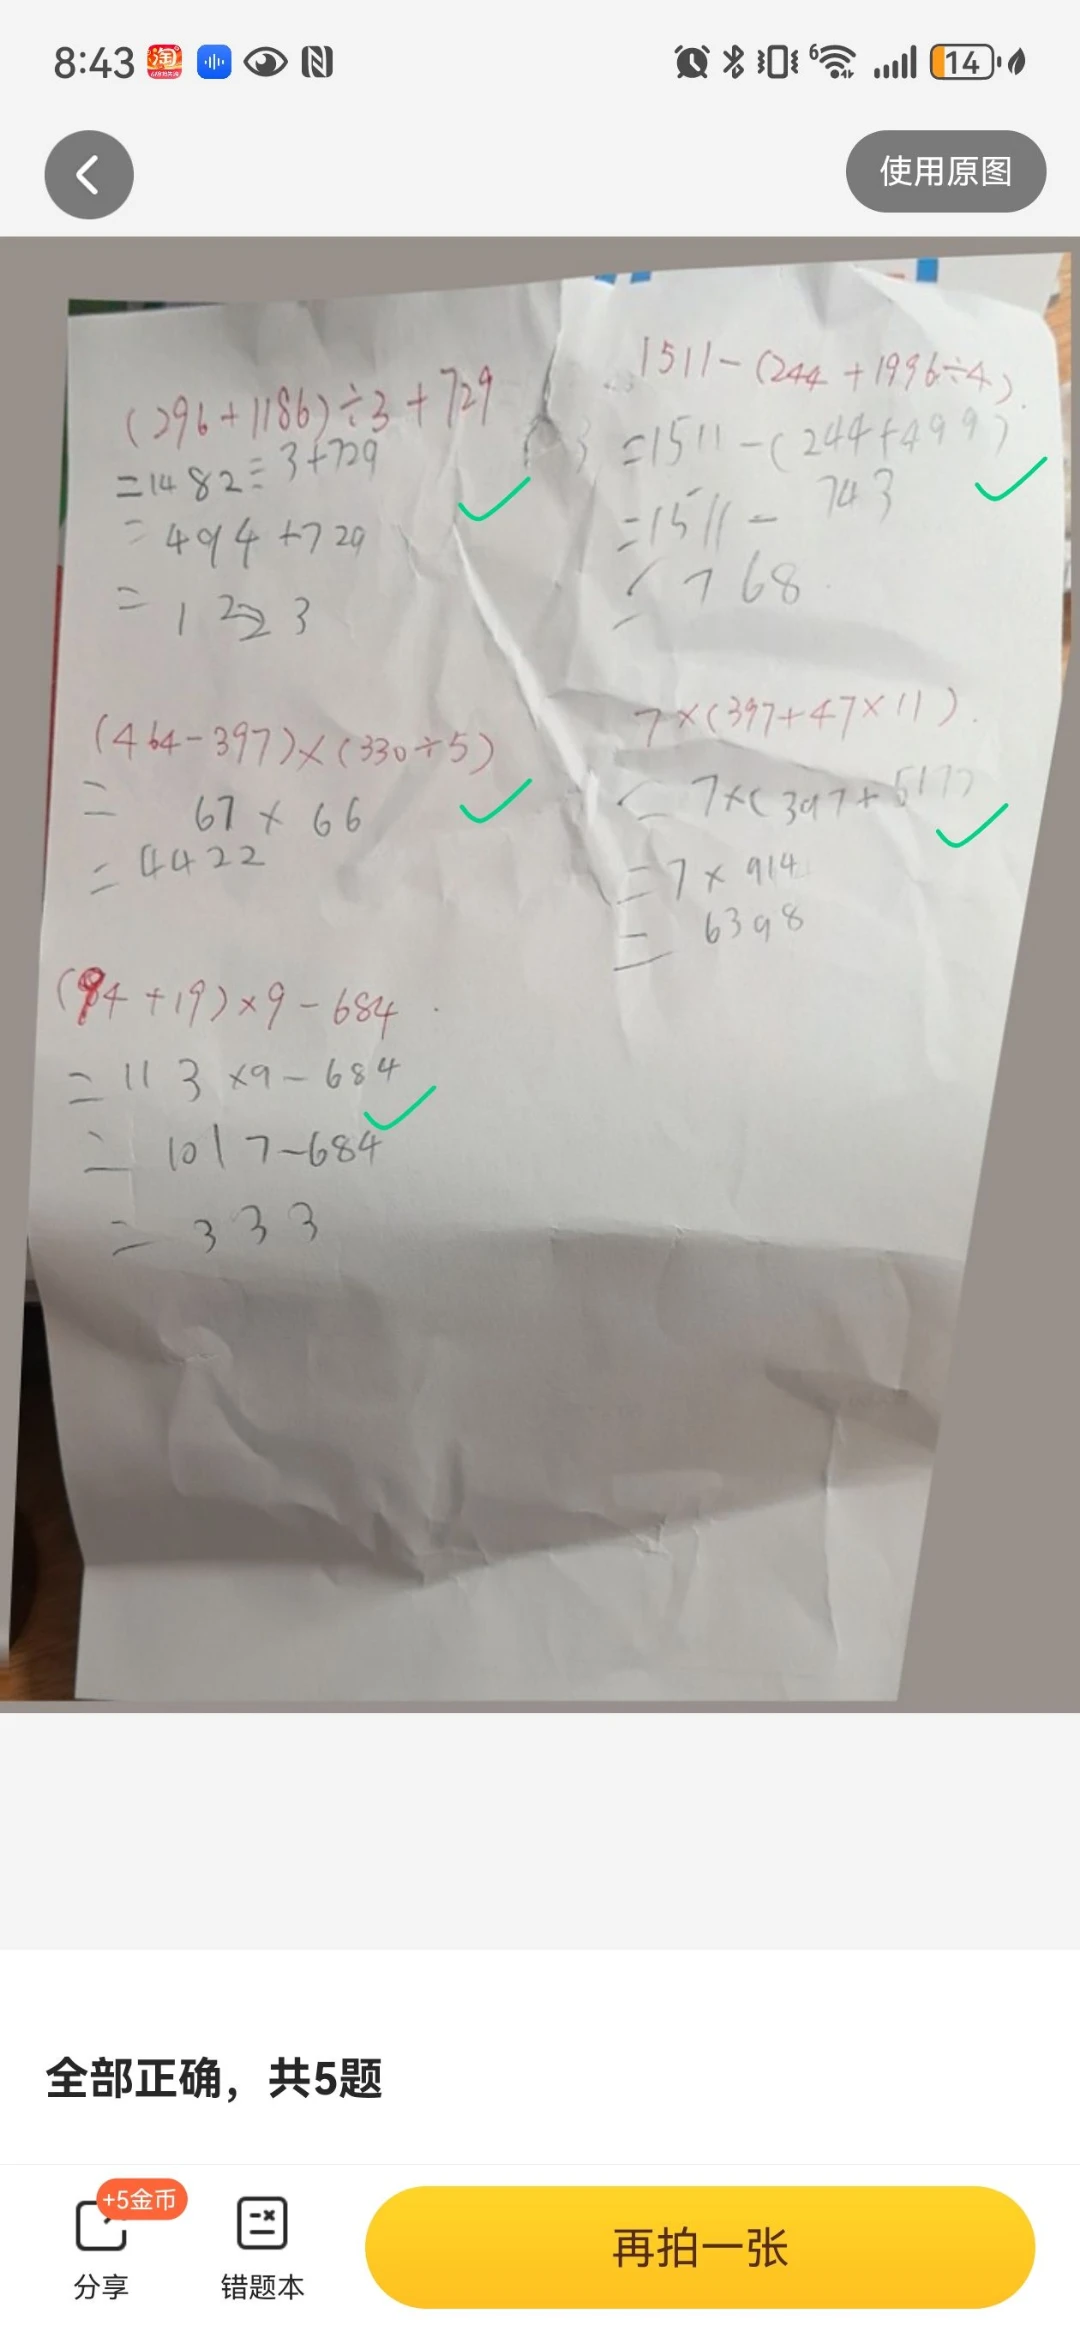 8:43
淘
14
使用原图
(296+1186)÷3+729
=1482÷3+729
=494+729
=1223
1511-(244+1996÷4)
=1511-(244+499)
=1511-743
=768
(464-397)×(330÷5)
=67×66
=4422
7×(397+47×11)
=7×(397+517)
=7×914
=6398
(94+19)×9-684
=113×9-684
=1017-684
=333
全部正确，共5题
+5金币
分享
错题本
再拍一张